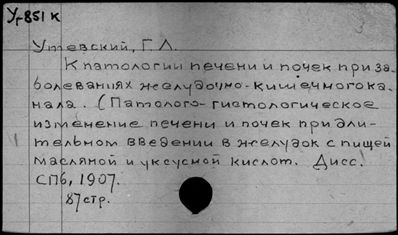 Уг851 к
Утевский, Г. Л.
К патологии печени и почек при за-
болеваниях желудочно-кишечного ка-
нала. (Патолого-гистологическое
изменение печени и почек при дли-
тельном введении в желудок с пищей
масляной и уксусной кислот. Дисс.
СПб, 1907.
87 стр.